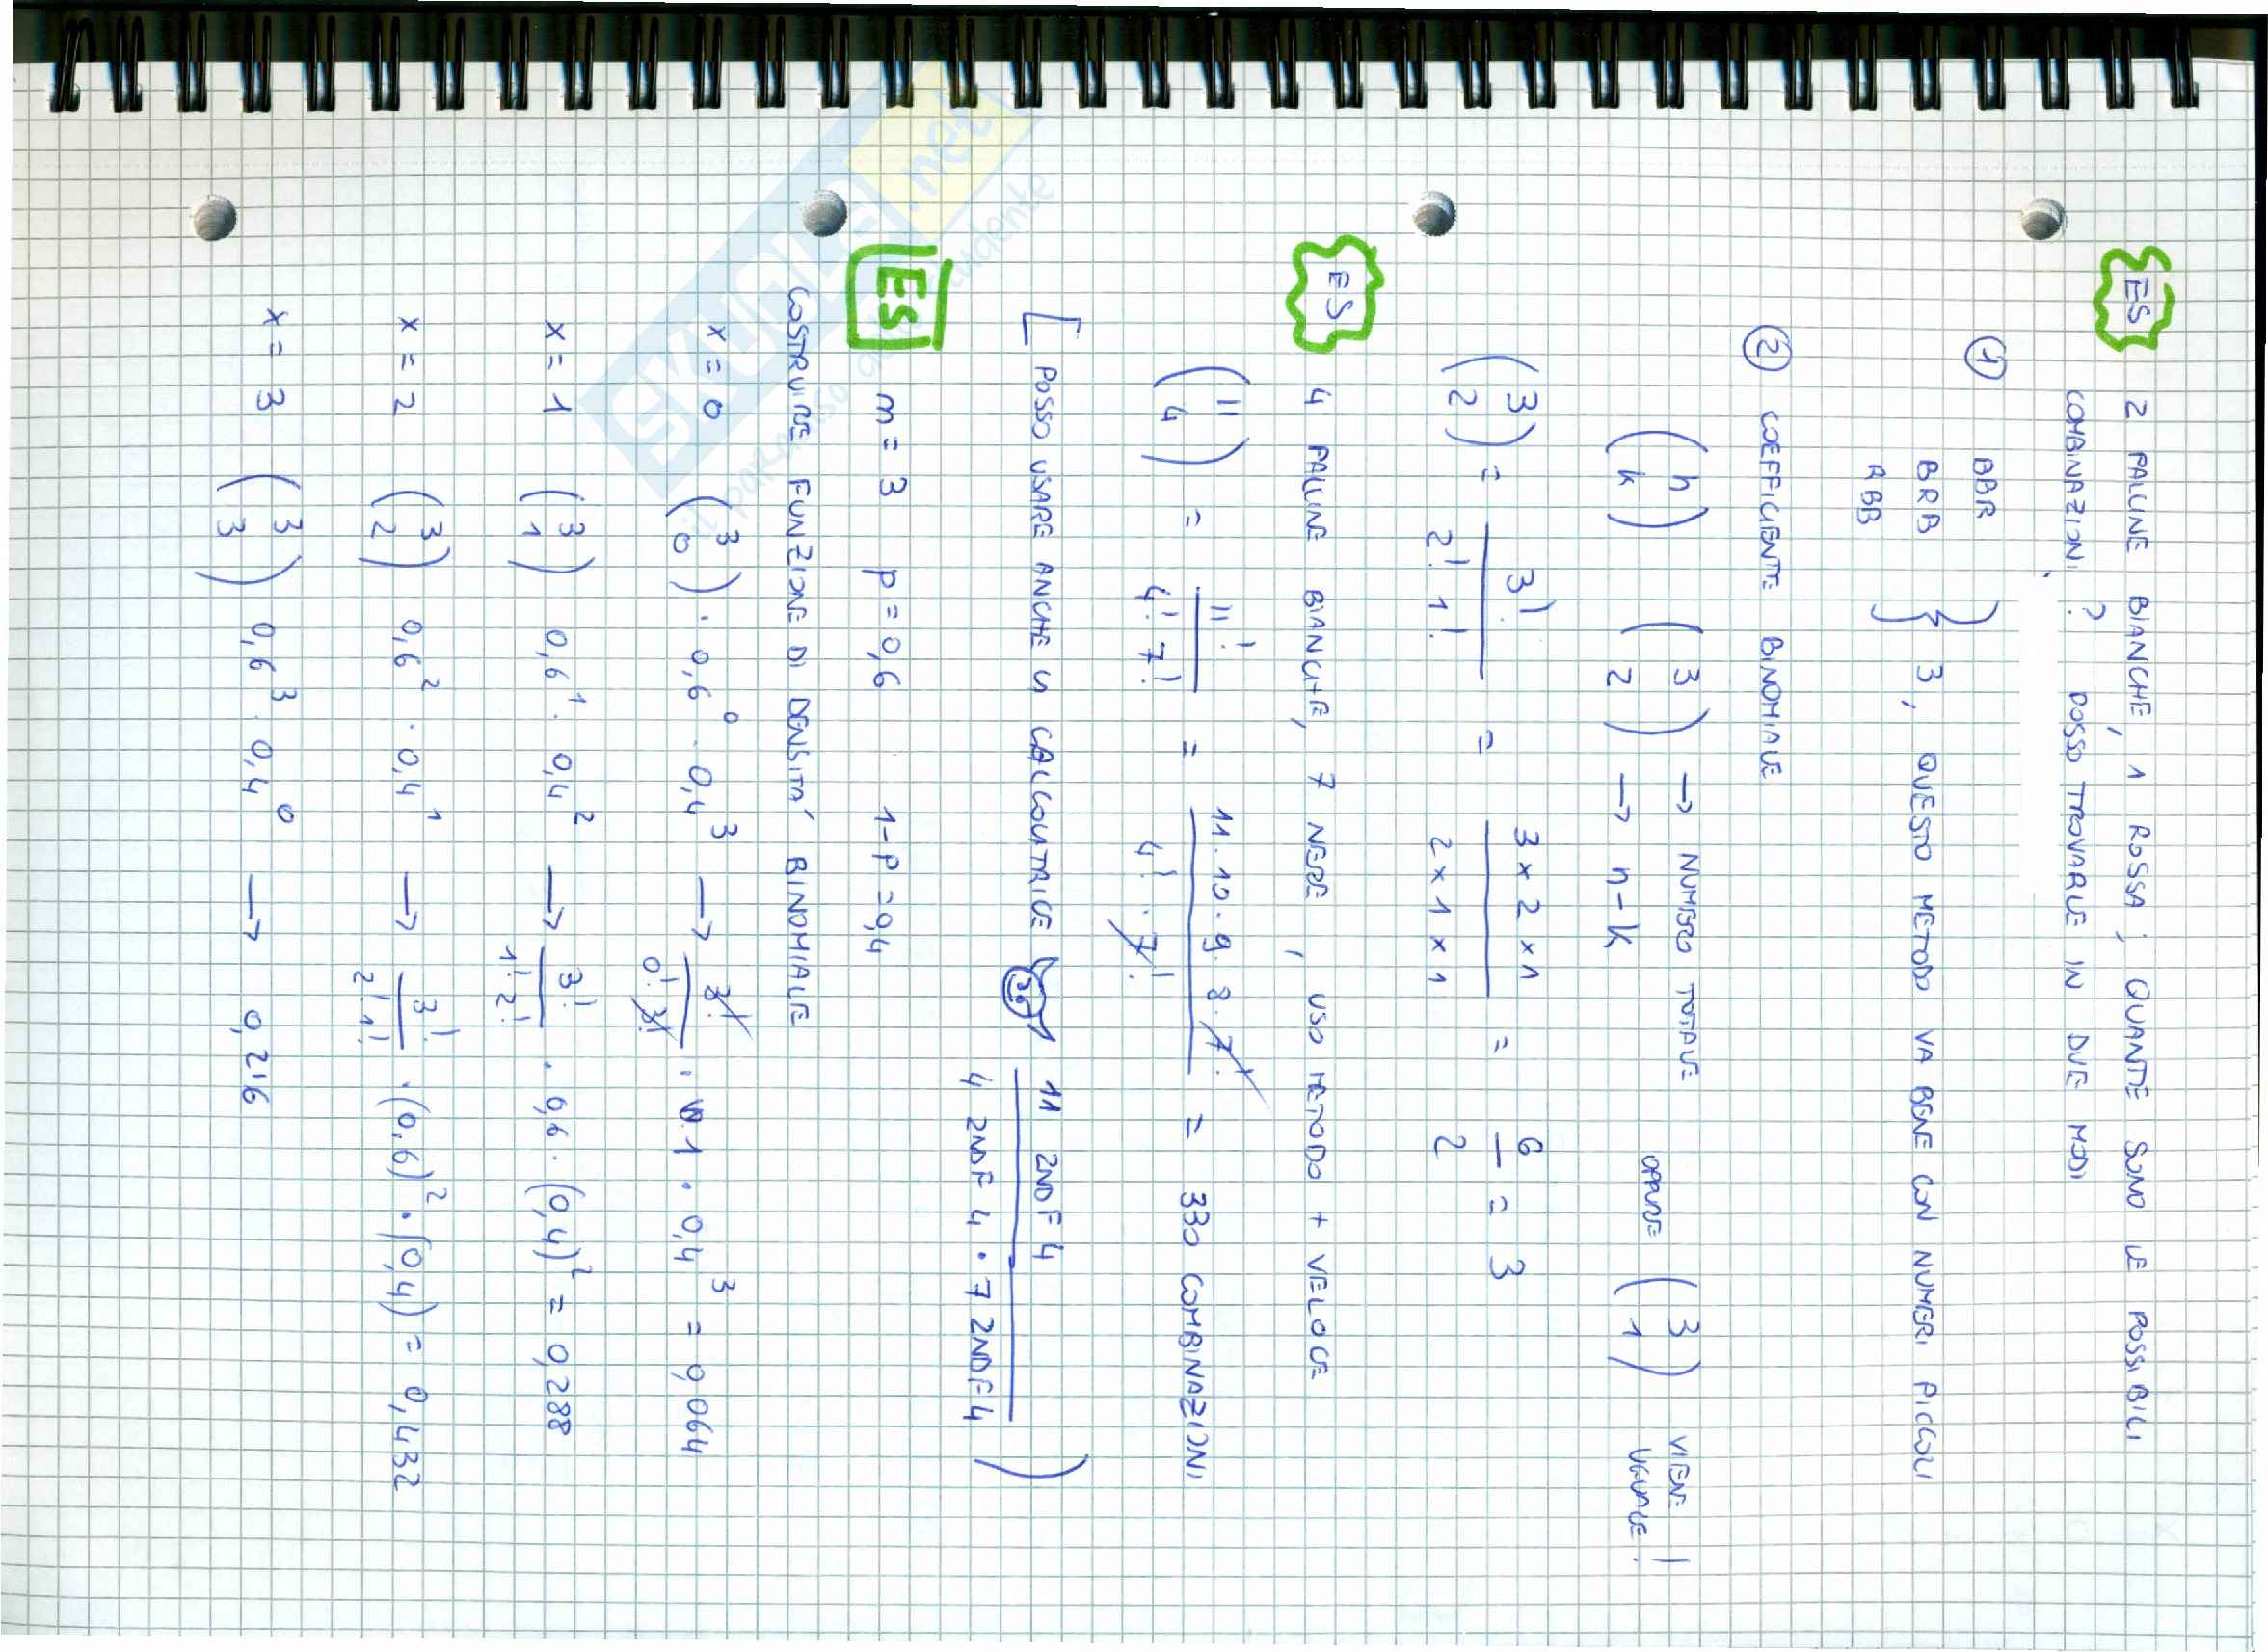 ES 2 PALLINE BIANCHE, 1 ROSSA; QUANTE SONO LE POSSIBILI
COMBINAZIONI? POSSO TROVARLE IN DUE MODI
① BBR
BRB } 3, QUESTO METODO VA BENE CON NUMERI PICCOLI
RBB
② COEFFICIENTE BINOMIALE
(n k) (3 2) → NUMERO TOTALE → n-k OPPURE (3 1) VIENE UGUALE!
(3 2) = 3! / 2! 1! = 3 x 2 x 1 / 2 x 1 x 1 = 6/2 = 3
ES 4 PALLINE BIANCHE, 7 NERE, USO METODO + VELOCE
(11 4) = 11! / 4! 7! = 11 · 10 · 9 · 8 · 7! / 4! · 7! = 330 COMBINAZIONI
[ POSSO USARE ANCHE LA CALCOLATRICE 11 2NDF 4 / 4 2NDF 4 · 7 2NDF 4 )
ES m = 3 p = 0,6 1-P = 0,4
COSTRUIRE FUNZIONE DI DENSITA' BINOMIALE
x = 0 (3 0) · 0,6⁰ · 0,4³ → 3! / 0! 3! · 1 · 0,4³ = 0,064
x = 1 (3 1) 0,6¹ · 0,4² → 3! / 1! 2! · 0,6 · (0,4)² = 0,288
x = 2 (3 2) 0,6² · 0,4¹ → 3! / 2! 1! · (0,6)² · (0,4) = 0,432
x = 3 (3 3) 0,6³ · 0,4⁰ → 0,216
SKUOLA.net
il paradiso dello studente